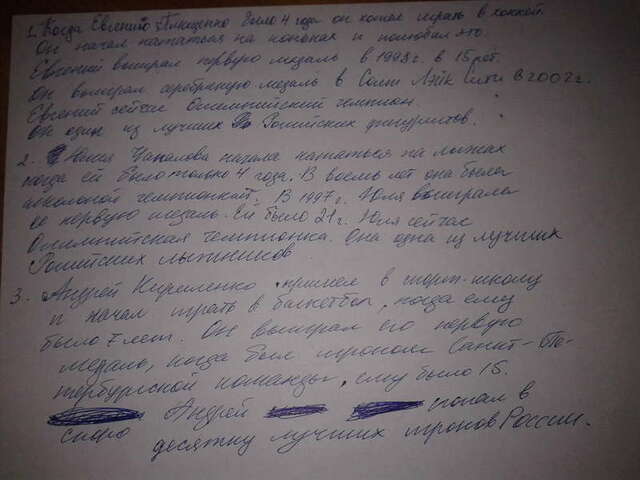 1. Когда Евгению Плющенко было 4 года он хотел играть в хоккей.
Он начал кататься на коньках и полюбил это.
Евгений выиграл первую медаль в 1998г. в 15 лет.
Он выиграл серебряную медаль в Солт Лэйк Сити в 2002г.
Евгений сейчас Олимпийский чемпион.
Он один из лучших Российских фигуристов.
2. Юлия Чапалова начала кататься на лыжах
когда ей было только 4 года. В восемь лет она была
школьной чемпионкой. В 1997г. Юля выиграла
ее первую медаль. Ей было 21г. Юля сейчас
Олимпийская чемпионка. Она одна из лучших
Российских лыжников.
3. Андрей Кириленко пришел в спорт-школу
и начал играть в баскетбол, когда ему
было 7 лет. Он выиграл его первую
медаль, когда был игроком Санкт-Пе-
тербургской команды, ему было 15.
Андрей попал в
скоро десятку лучших игроков России.